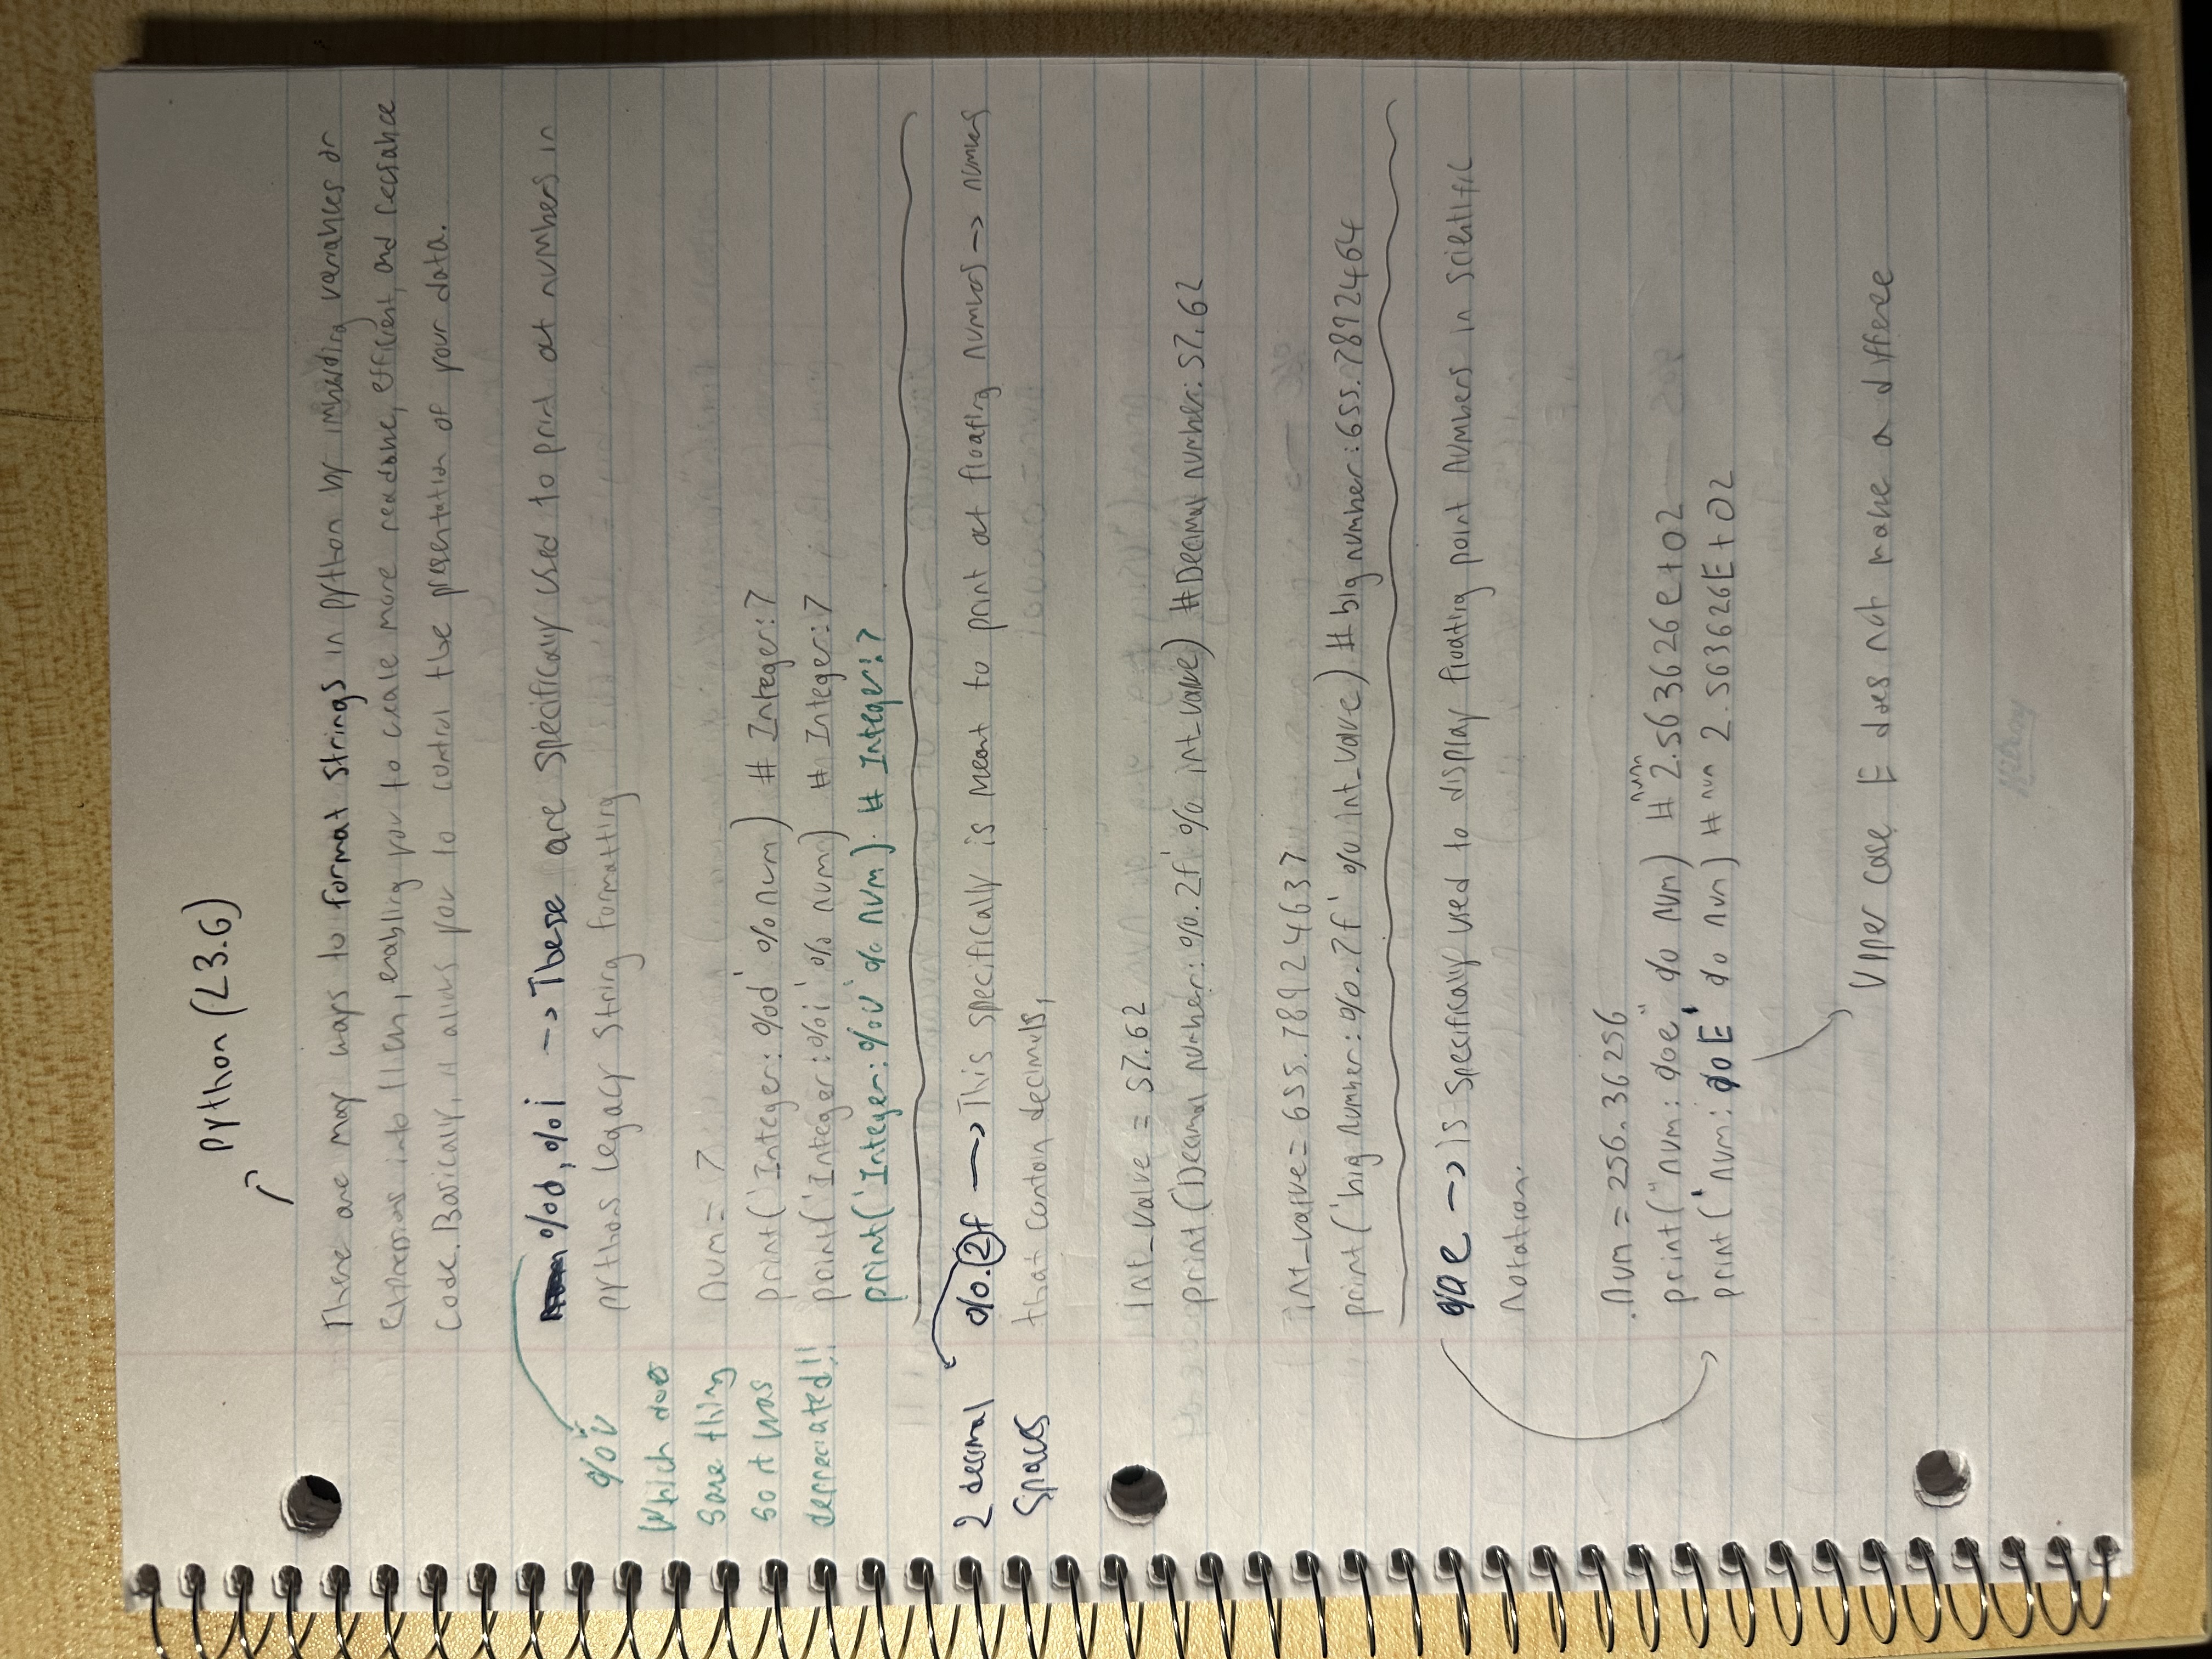 Python (L3.6)
There are may ways to format strings in python by imbedding variables or
expressions into them, enabling you to create more readable, efficient, and
Code. Basically, it allows you to control the presentation of your data.
%d, %i -> These are specifically used to print out numbers in
pythons legacy string formatting
%u
Which does
same thing
so it was
depreciated!!
num = 7
print('Integer: %d' % num) # Integer: 7
print('Integer: %i' % num) # Integer: 7
print('Integer: %u' % num) # Integer: 7
2 decimal
spaces
%.2f -> This specifically is meant to print out floating numbers -> numbers
that contain decimals,
int_value = 57.62
print(Decimal number: %.2f' % int_value) # Decimal number: 57.62
int_value = 655.78924637
print('big number: %.7f' % int_value) # big number: 655.7892464
%e -> is specifically used to display floating point numbers in scientific
notation.
num = 256.36256
print("num: %e" % num) # num 2.563626e+02
print('num: %E' % num) # num 2.563626E+02
Upper case E does not make a differee
Hilroy